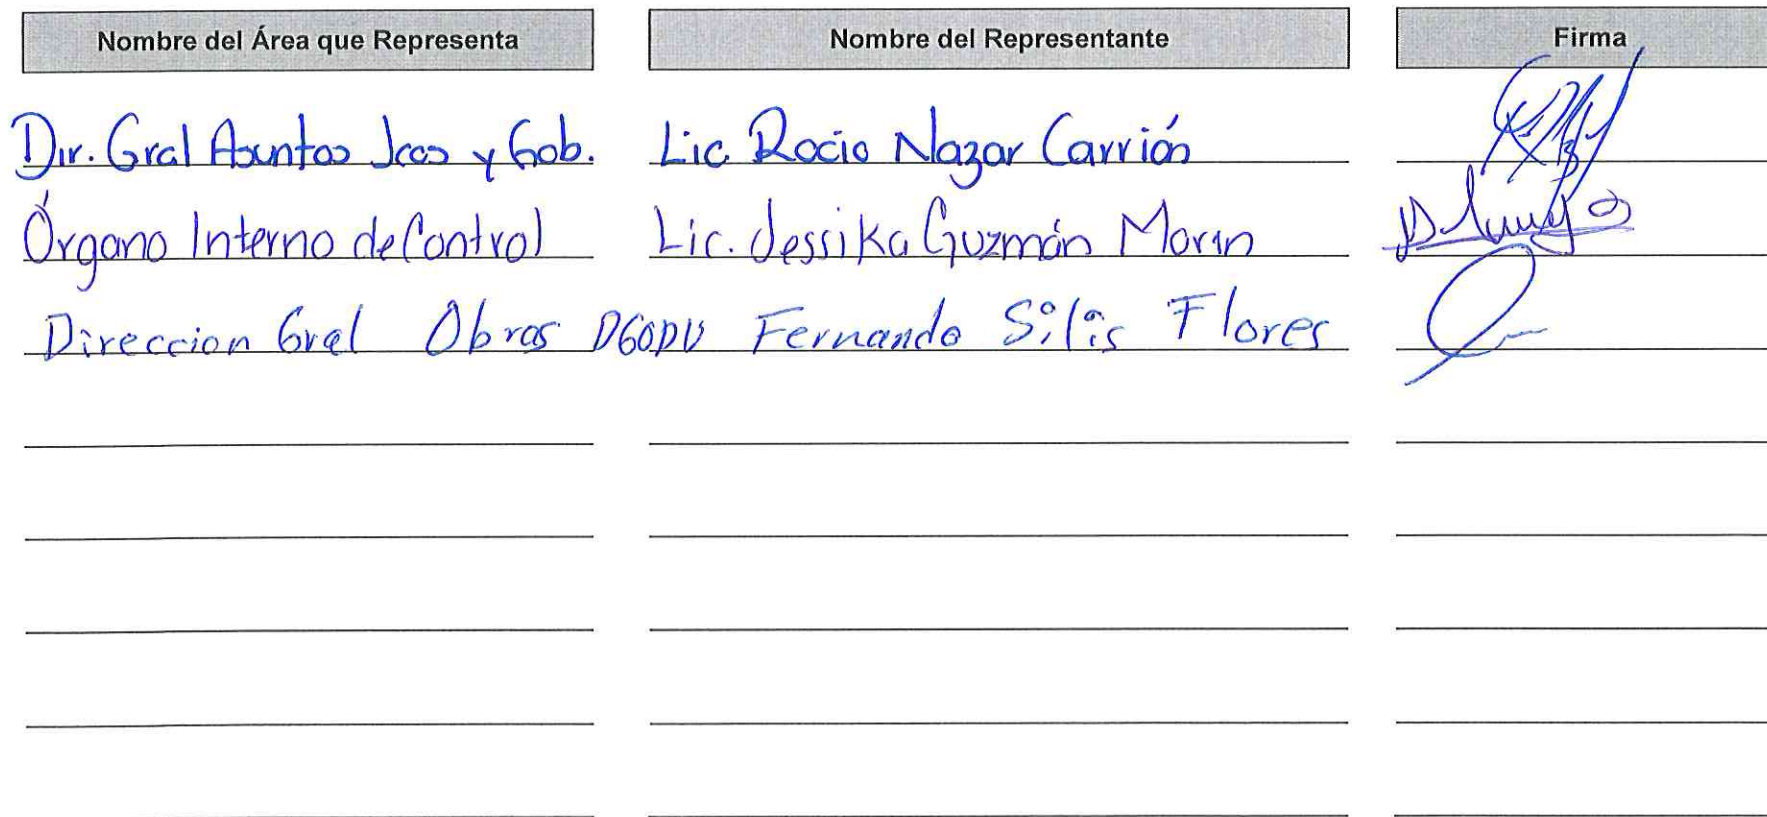 Nombre del Área que Representa Nombre del Representante Firma
Dir. Gral Asuntos Jcos y Gob. Lic. Rocio Nazar Carrión
Órgano Interno de Control Lic. Jessika Guzmán Morin
Direccion Gral Obras DGODU Fernando Silis Flores